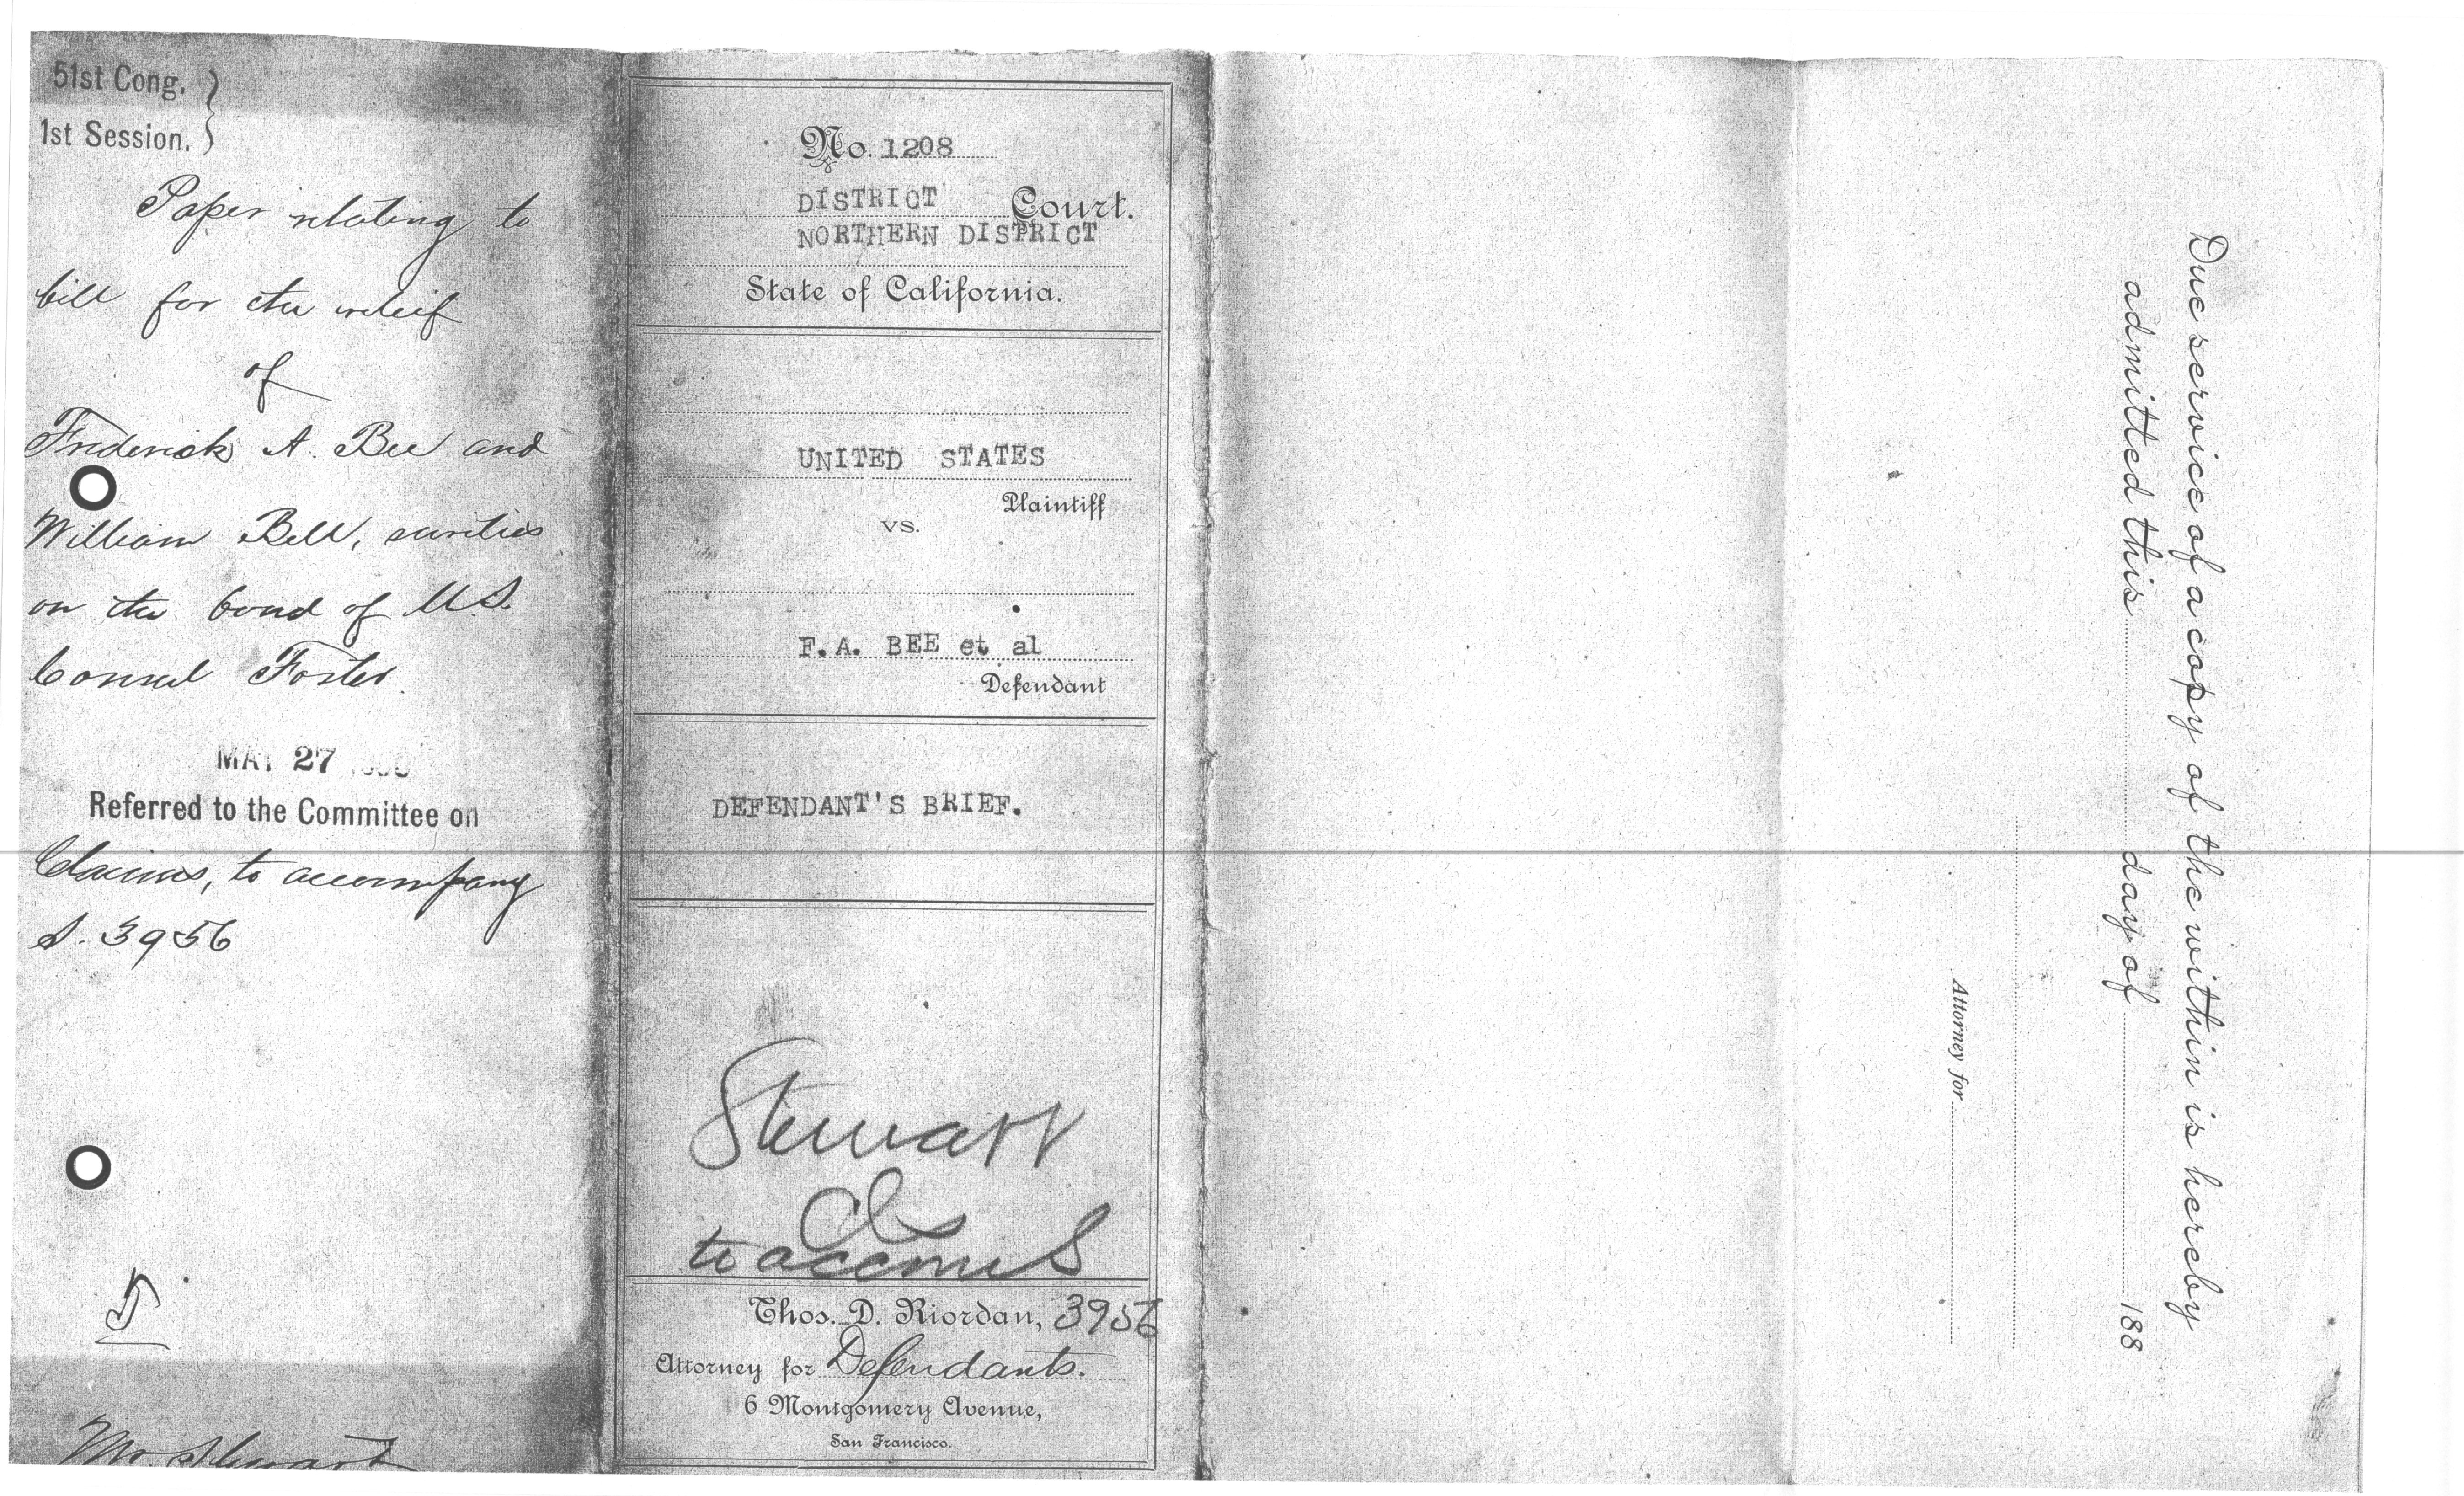 51st Cong.
1st Session.
Paper relating to
bill for the relief
of
Frederick A. Bee and
William Bell, sureties
on the bond of U.S.
Consul Foster.
MAY 27
Referred to the Committee on
Claims, to accompany
S. 3956
Mr. Stewart
No. 1208
DISTRICT Court.
NORTHERN DISTRICT
State of California.
UNITED STATES
Plaintiff
vs.
F.A. BEE et al
Defendant
DEFENDANT'S BRIEF.
Stewart
to accom S
Thos. D. Riordan, 3956
Attorney for Defendants.
6 Montgomery Avenue,
San Francisco.
Due service of a copy of the within is hereby
admitted this day of 188
Attorney for